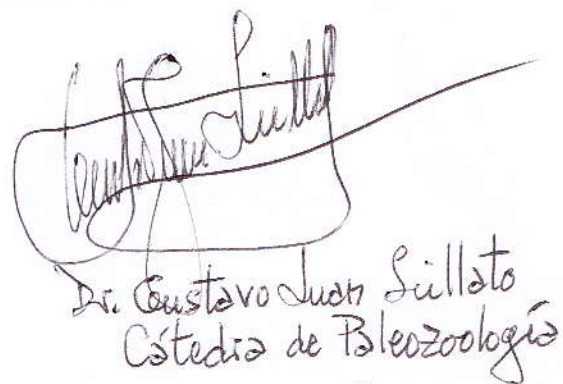 Dr. Gustavo Juan Scillato
Cátedra de Paleozoología